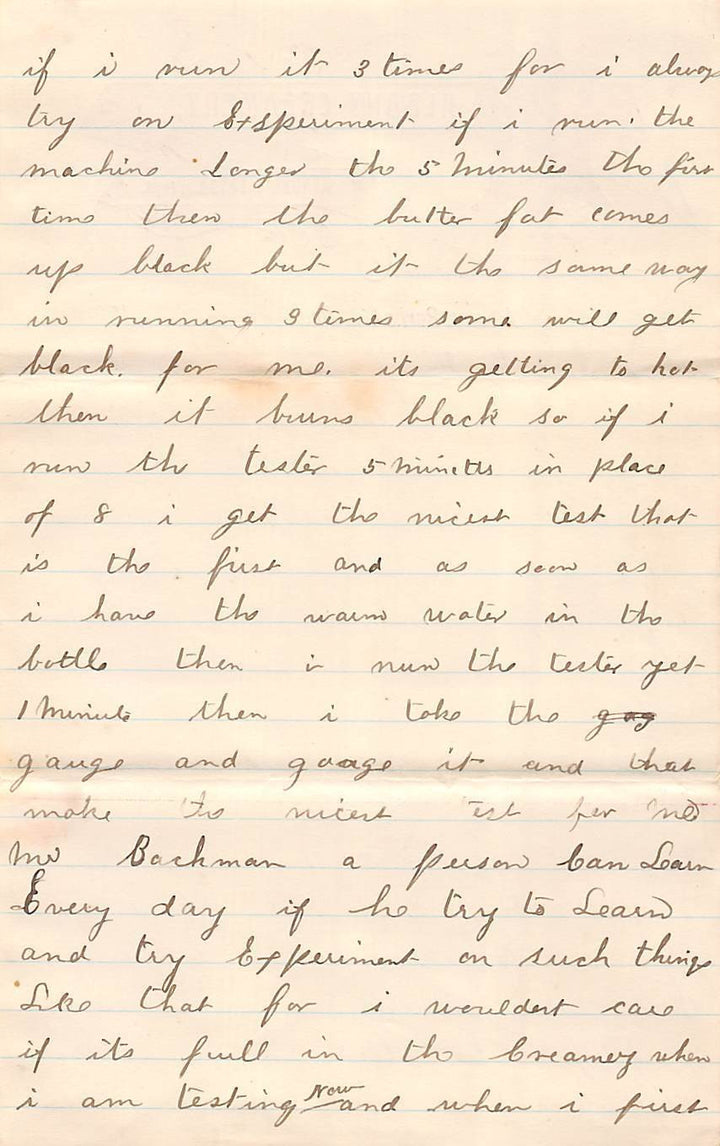 if i run it 3 times for i alway
try on Exsperiment if i run the
machine Longer the 5 minutes the first
time then the butter fat comes
up black but it the same way
in running 3 times some will get
black. for me. its getting to hot
then it burns black so if i
run th tester 5 minetts in place
of 8 i get the nicest test that
is the first and as soon as
i have the warm water in the
bottle then i run the tester yet
1 minute then i take the
gauge and gauge it and that
make the nicest test for me
Mr Backman a person Can Learn
Every day if he try to Learn
and try Experiment on such things
Like that for i wouldent care
if its full in the Creamery when
i am testing Now and when i first